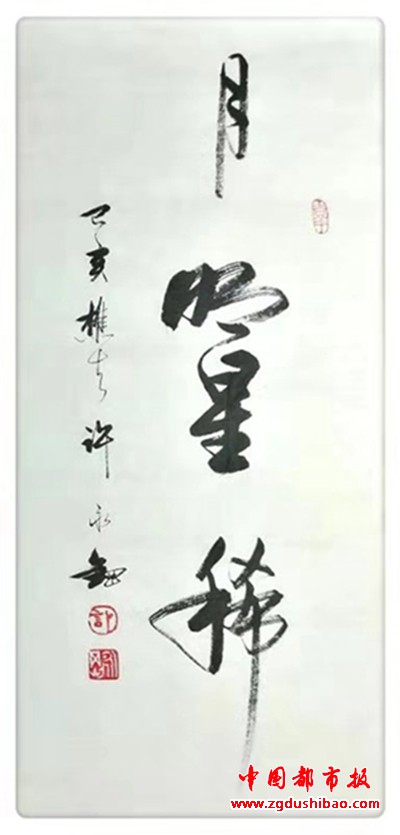 月明星稀
己亥樵夫许永
中国都市报
www.zgdushibao.com